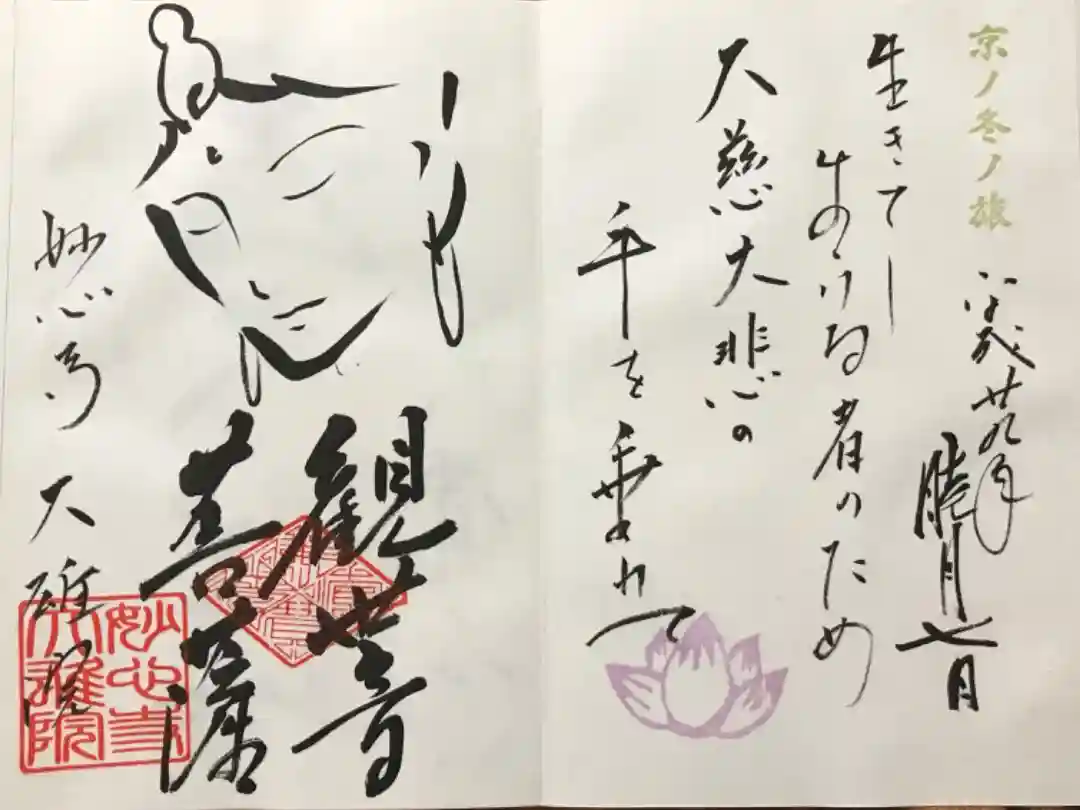 京ノ冬ノ旅
平成廿九年
睦月七日
生きとし
生ける者のため
大慈大悲の
手を垂れて
観世音
菩薩
妙心寺 大雄院
妙心寺
大雄院